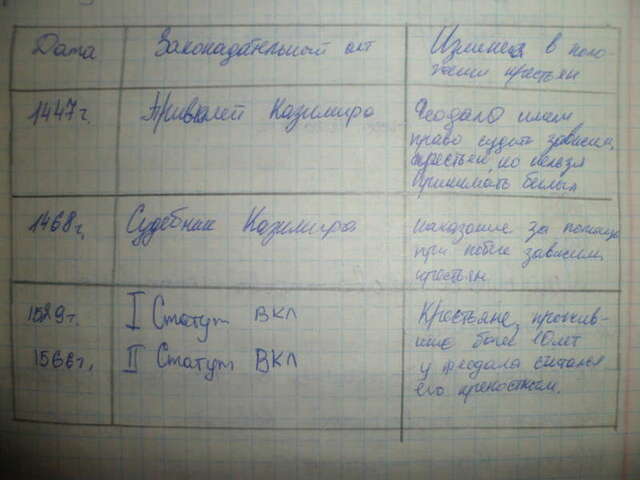 Дата Законадательный акт Изменен в поло-
жении крестьян
1447г. Привилей Казимира Феодало имел
право судить зависим.
крестьян, но нельзя
принимать беглых
1468г. Судебник Казимира наказание за помощь
при побеге зависим.
крестьян
1529г. I Статут ВКЛ Крестьяне, прожив-
шие более 10 лет
1566г. II Статут ВКЛ у феодала считалсь
его крепостным.